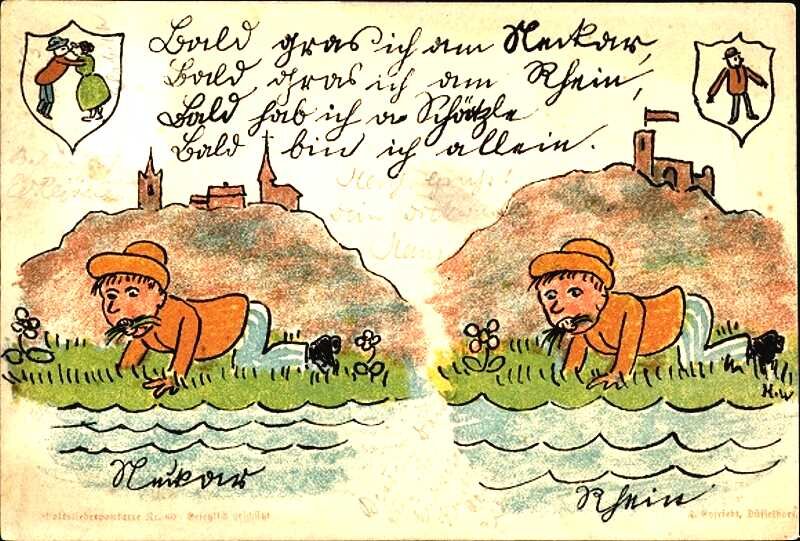 Bald gras ich am Neckar,
Bald gras ich am Rhein,
Bald hab ich a Schätzle
Bald bin ich allein.
H.W
Neckar
Rhein
Volksliederpostkarte Nr. 60 Gesetzlich geschützt
Düsseldorf.